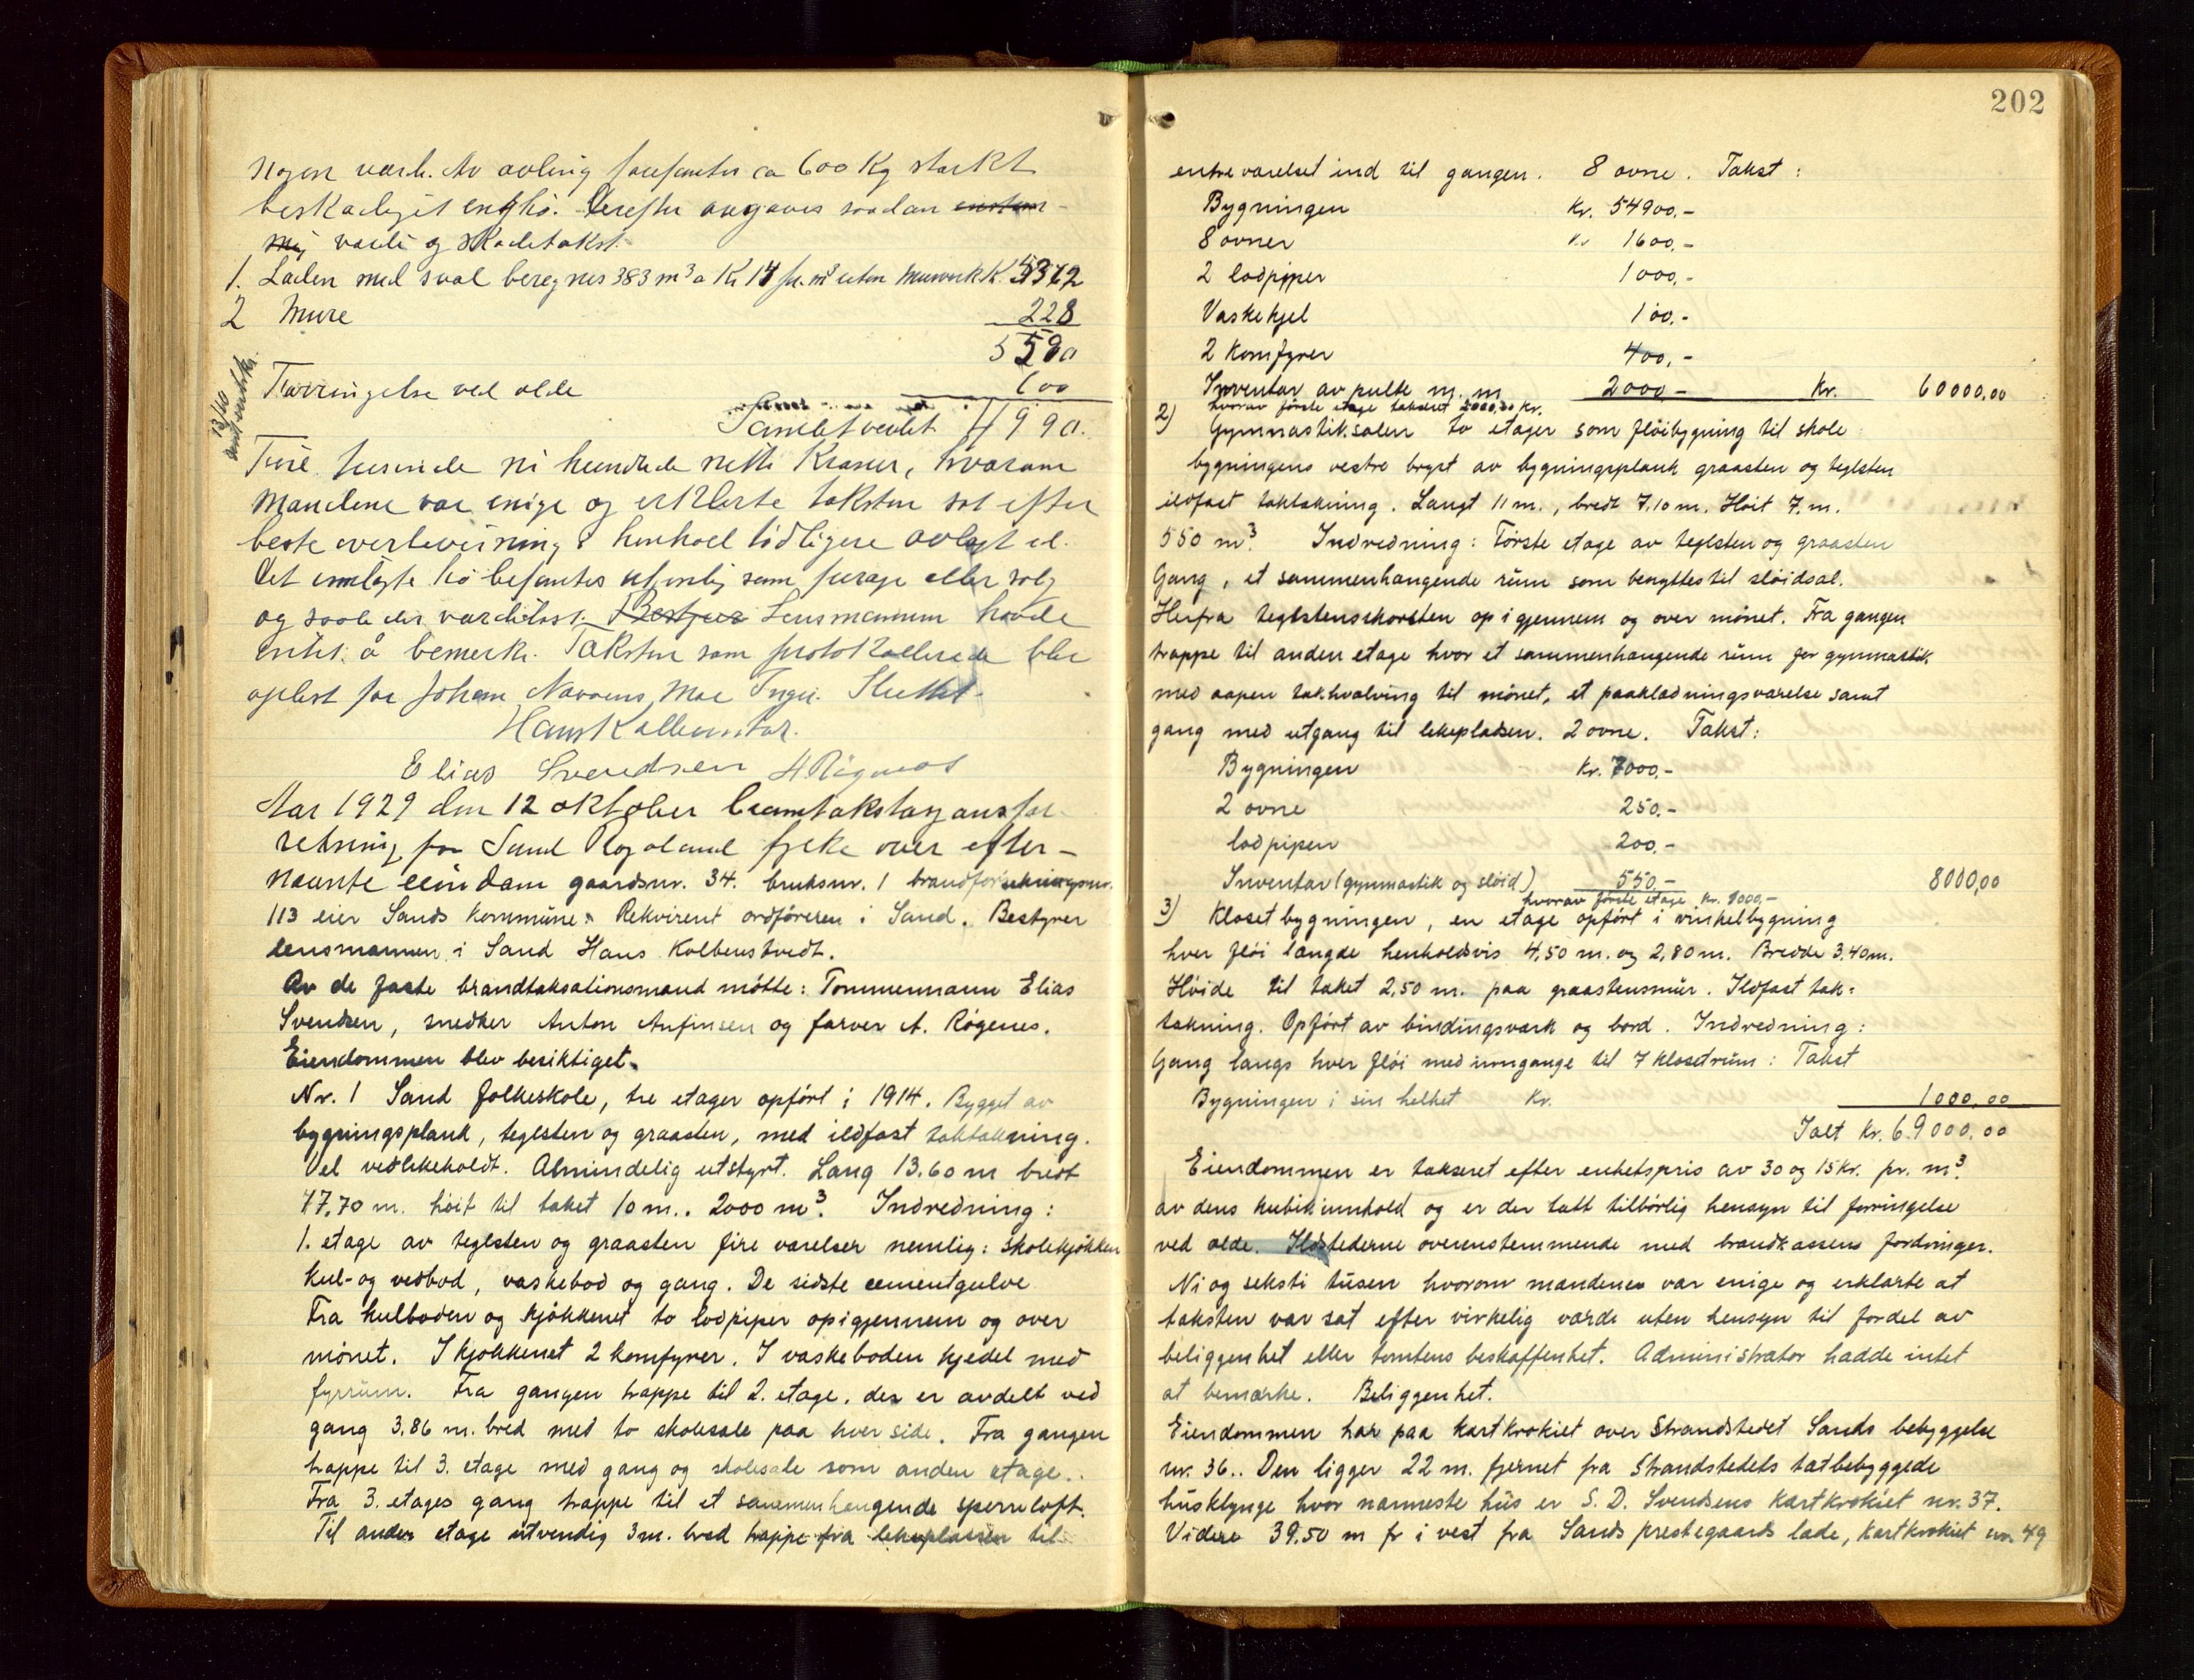 nogen værdi. Av avling forefantes ca 600 Kg sterkt
beskadiget enghø. Derefter avgaves saadan
verdi og skadetakst.
1. Laden med sval beregnes 383 m³ a Kr 14 pr. m³ uten Murverk K. 5362
2 Mure 228
5590
Forringelse ved ælde 600
Samlet verdi 4990.
13/10
Fire tusinde ni hundrede nitti Kroner, hvorom
Mændene var enige og erklærte taksten sat efter
beste overbevisning i henhold tidligere avlagt ed.
Det innlagte hø befantes utjenlig som forage eller salg
og saaledes værdiløst. Lensmannen havde
intet å bemerke. Taksten som protokollerede blev
oplest for Johan Navvens, Moe Inga. Sluttet.
Hans Kolbenstvedt.
Elias Svendsen A Røgenes
Aar 1929 den 12 oktober brandtakstasjonsfor-
retning for Sand Rogaland fylke over efter-
nævnte eiendom gaardsnr. 34. bruksnr. 1 brandforsikringsnr.
113 eier Sands kommune. Rekvirent ordføreren i Sand. Bestyrer
lensmannen i Sand Hans Kolbenstvedt.
Av de faste brandtaksationsmænd møtte: Tømmermann Elias
Svendsen, snedker Anton Anfinsen og farver A. Røgenes.
Eiendommen blev besiktiget.
Nr. 1 Sand folkeskole, tre etager opført i 1914. Bygget av
bygningsplank, teglsten og graasten, med ildfast taktækning.
Vel vedlikeholdt. Almindelig utstyrt. Lang 13.60 m bredt
17.70 m. høit til taket 10 m.. 2000 m³. Indredning:
1. etage av teglsten og graasten fire værelser nemlig: skolekjøkken
kul- og vedbod, vaskebod og gang. De sidste cementgulve
Fra kulboden og kjøkkenet to lodpiper opigjennem og over
mønet. I kjøkkenet 2 komfyrer. I vaskeboden kjedel med
fyrrum. Fra gangen trappe til 2. etage. der er avdelt ved
gang 3,86 m. bred med to skolesale paa hver side. Fra gangen
trappe til 3. etage med gang og skolesale som anden etage..
Fra 3. etages gang trappe til et sammenhængende sperreloft.
Til anden etage utvendig 3m. bred trappe fra lekeplassen til
202
entreværelset ind til gangen. 8 ovne. Takst:
Bygningen Kr. 54900.-
8 ovner Kr 1600.-
2 lodpiper 1000.-
Vaskekjel 100.-
2 Komfyrer 400,-
Inventar av pulte m. m 2000 - Kr. 60000,00
hvorav første etage takseret 2000,00 kr.
2) Gymnastiksalen to etager som fløibygning til skole
bygningens vestre bryst av bygningsplank graasten og teglsten
ildfast taktækning. Langt 11 m., bredt 7.10 m. Høit 7. m.
550 m³. Indredning: Første etage av teglsten og graasten
Gang, et sammenhængende rum som benyttes til sløidsal.
Herfra teglstensskorsten op igjennem og over mønet. Fra gangen
trappe til anden etage hvor et sammenhængende rum for gymnastik
med aapen takhvælving til mønet, et paaklædningsværelse samt
gang med utgang til lekepladsen. 2 ovne. Takst:
Bygningen Kr. 7000.-
2 ovne 250.-
lodpipen 200.-
Inventar (gymnastik og sløid) 550 - 8000,00
hvorav første etage Kr. 1000,-
3) Klosetbygningen, en etage opført i vinkelbygning
hver fløi længde henholdsvis 4,50 m. og 2,80 m. Bredde 3.40m.
Høide til taket 2,50 m. paa graastensmur. Ildfast tak-
tækning. Opført av bindingsværk og bord. Indredning:
Gang langs hver fløi med inngange til 7 klosetrum: Takst
Bygningen i sin helhet Kr. 1000,00
Ialt Kr. 69000,00
Eiendommen er takseret efter enhetspris av 30 og 15 kr. pr. m³
av dens kubikinnhold og er der tatt tilbørlig hensyn til forringelse
ved ælde. Ildstederne overenstemmende med brandkassens fordringer.
Ni og seksti tusen hvorom mændene var enige og erklærte at
taksten var sat efter virkelig værdi uten hensyn til fordel av
beliggenhet eller tomtens beskaffenhet. Administrator hadde intet
at bemærke. Beliggenhet.
Eiendommen har paa kartkrokiet over Strandstedet Sands bebyggelse
nr. 36.. Den ligger 22 m. fjernet fra Strandstedets tætbebyggede
husklynge hvor nærmeste hus er S. D. Svendsens kartkrokiet nr. 37.
Videre 39.50 m fr i vest fra Sands prestegaards lade, kartkrokiet nr. 49